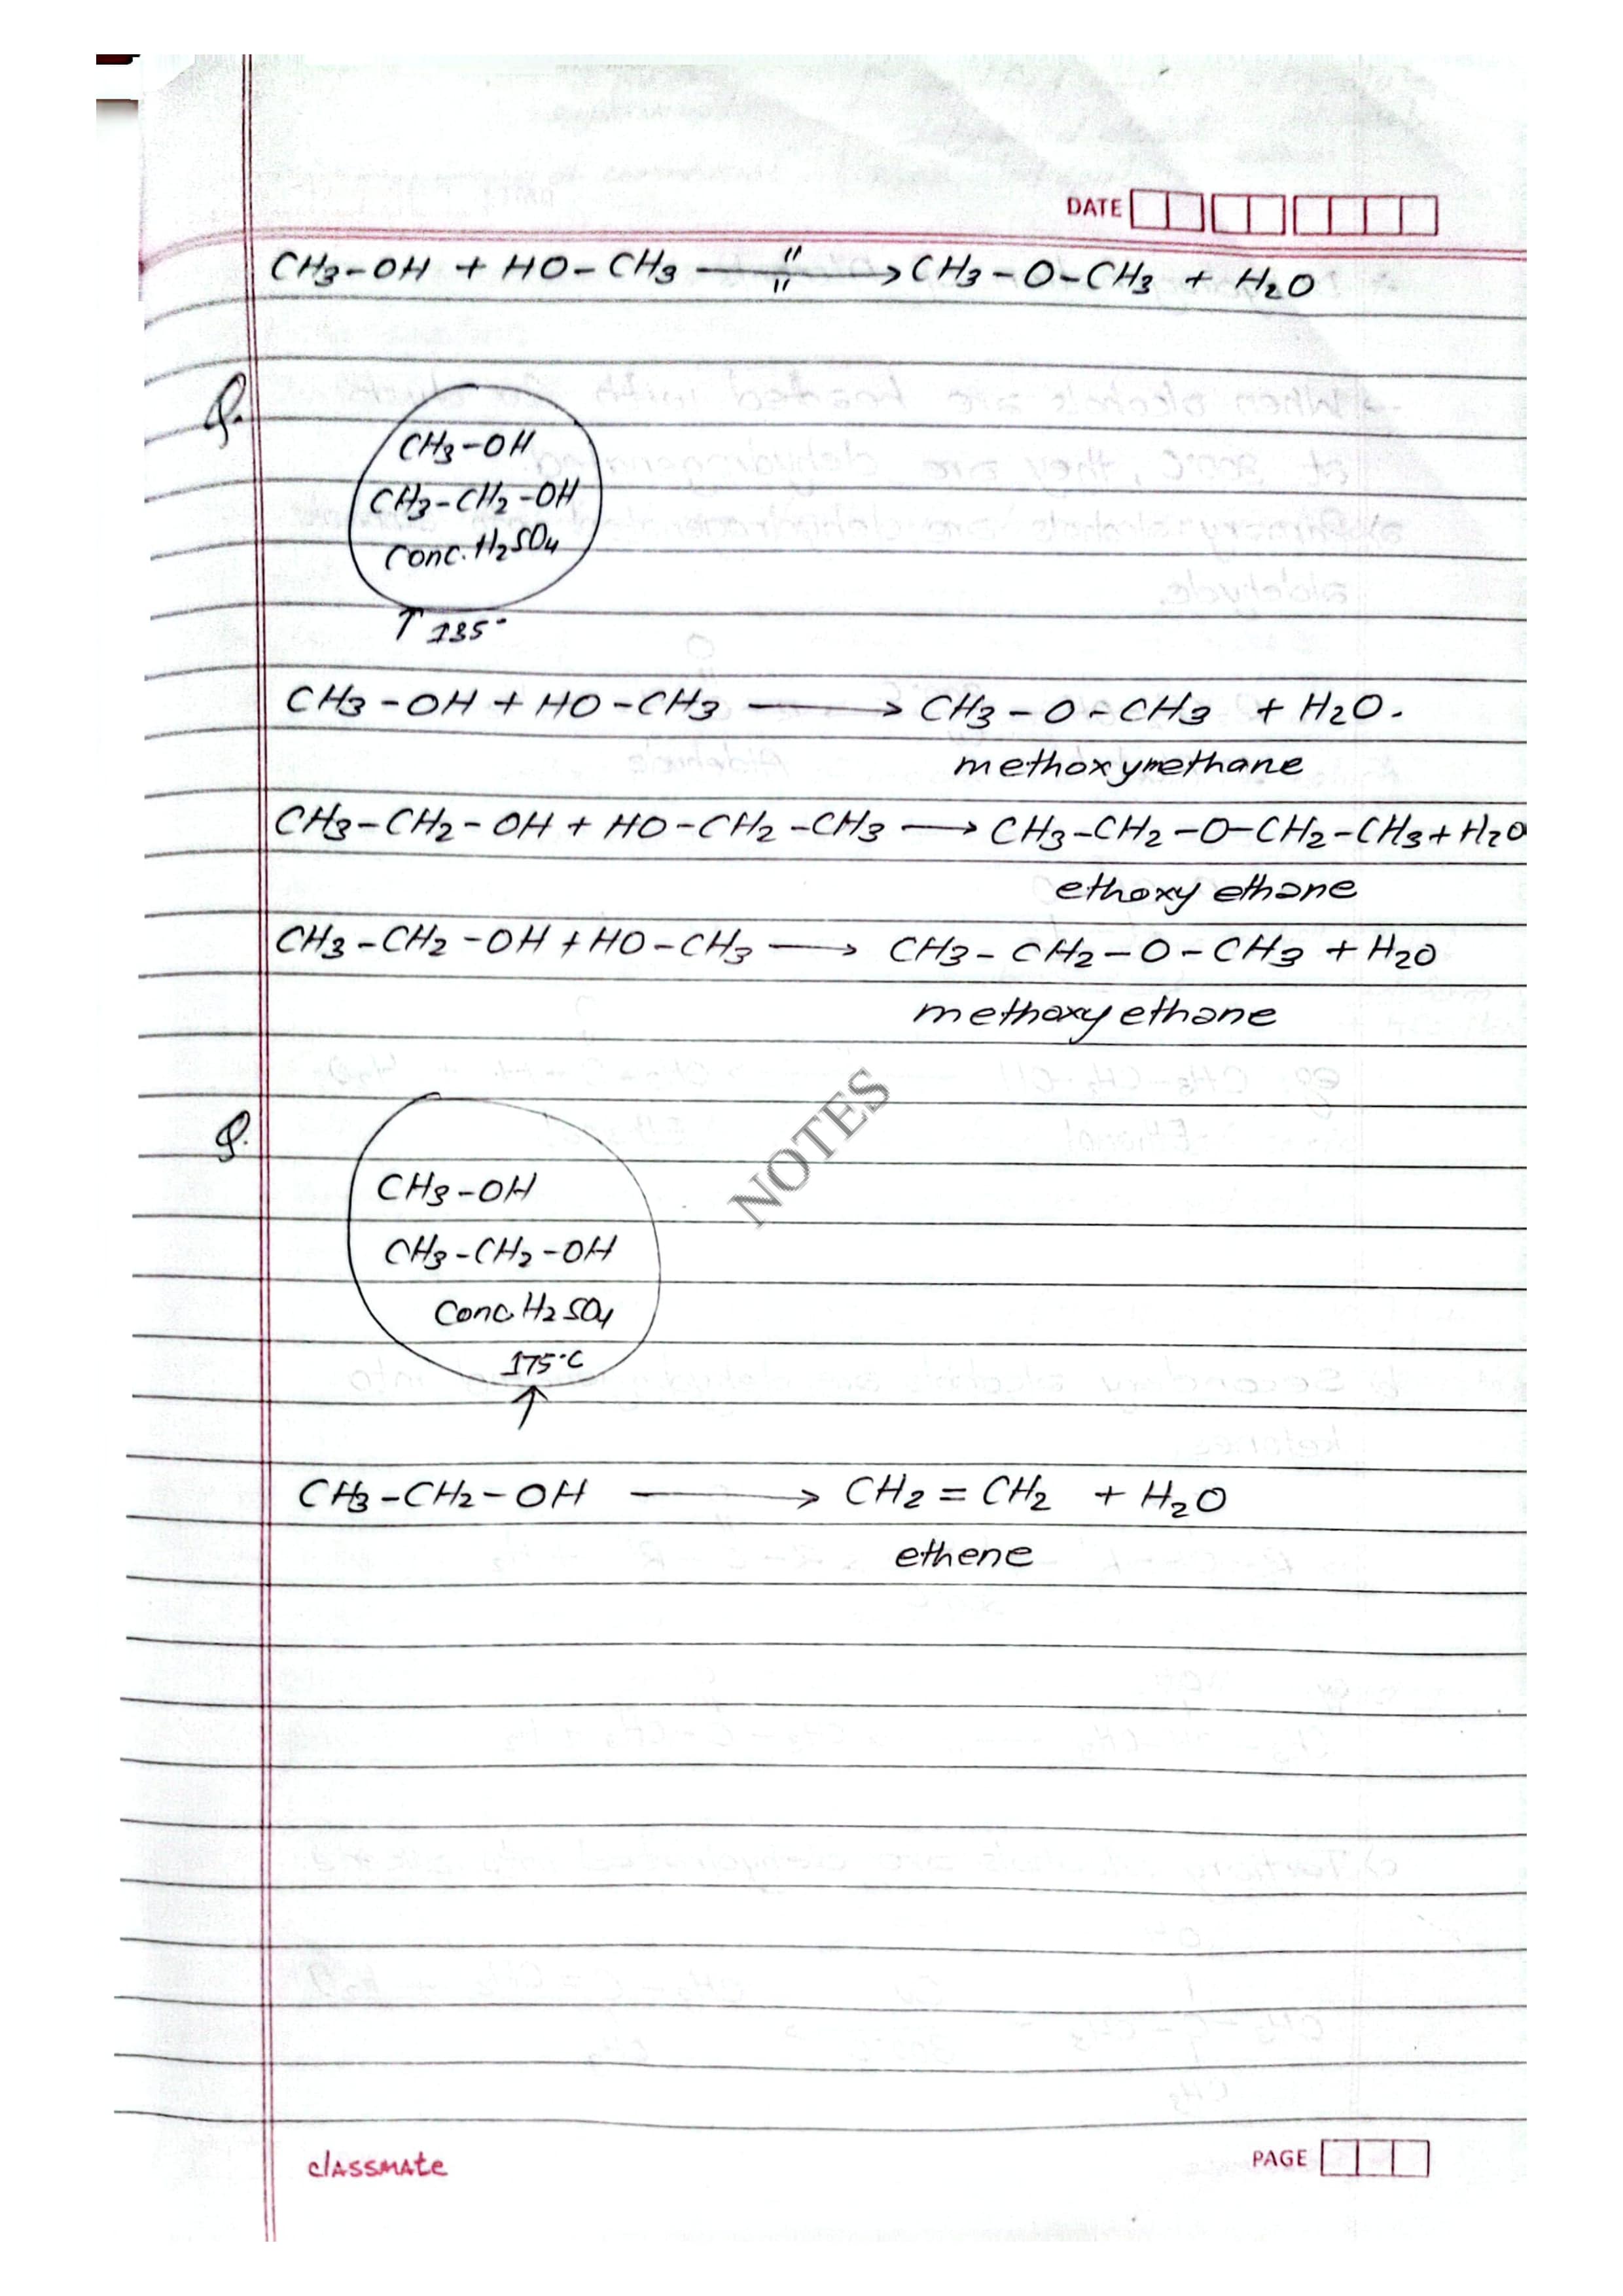 DATE
CH3-OH + HO-CH3 —"→ CH3-O-CH3 + H2O
Q.
CH3-OH
CH3-CH2-OH
Conc. H2SO4
↑ 135°
CH3-OH + HO-CH3 ⟶ CH3-O-CH3 + H2O.
methoxymethane
CH3-CH2-OH + HO-CH2-CH3 ⟶ CH3-CH2-O-CH2-CH3 + H2O
ethoxy ethane
CH3-CH2-OH + HO-CH3 ⟶ CH3-CH2-O-CH3 + H2O
methoxy ethane
NOTES
Q.
CH3-OH
CH3-CH2-OH
Conc. H2SO4
175°C
↑
CH3-CH2-OH ⟶ CH2=CH2 + H2O
ethene
classmate
PAGE